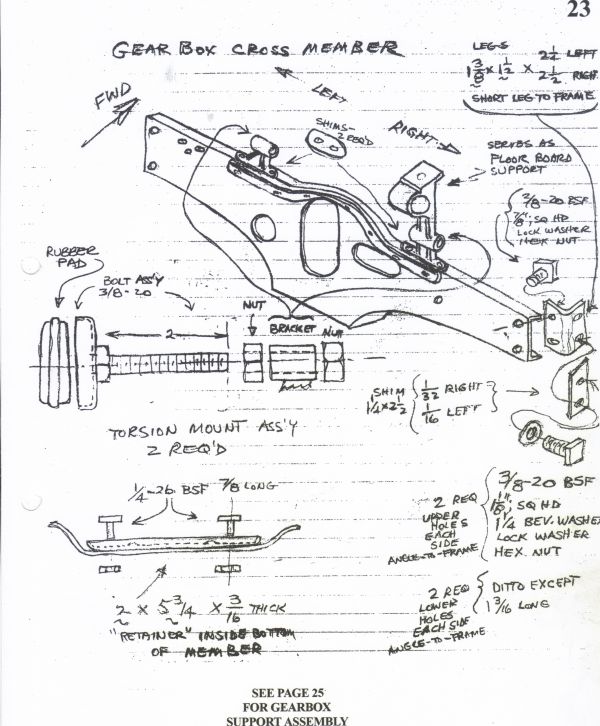 23
GEAR BOX CROSS MEMBER
LEGS
1 3/8 x 1 1/2 x 2 1/2 LEFT
2 1/2 RIGH.
SHORT LEG TO FRAME
FWD
LEFT
SHIMS-
2 REQ'D
RIGHT
SERVES AS
FLOOR BOARD
SUPPORT
3/8-20 BSF
7/8" SQ HD
LOCK WASHER
HEX NUT
RUBBER
PAD
BOLT ASS'Y
3/8-20
2
NUT
BRACKET
NUT
SHIM
1/4 x 2 1/2
1/32 RIGHT
1/16 LEFT
TORSION MOUNT ASS'Y
2 REQ'D
1/4-26 BSF 7/8 LONG
2 x 5 3/4 x 3/16 THICK
"RETAINER" INSIDE BOTTOM
OF MEMBER
2 REQ
UPPER
HOLES
EACH
SIDE
ANGLE-TO-FRAME
3/8-20 BSF
SQ HD
1 1/4 BEV. WASHE
LOCK WASHER
HEX. NUT
2 REQ
LOWER
HOLES
EACH SIDE
ANGLE-TO-FRAME
DITTO EXCEPT
1 3/16 LONG
SEE PAGE 25
FOR GEARBOX
SUPPORT ASSEMBLY